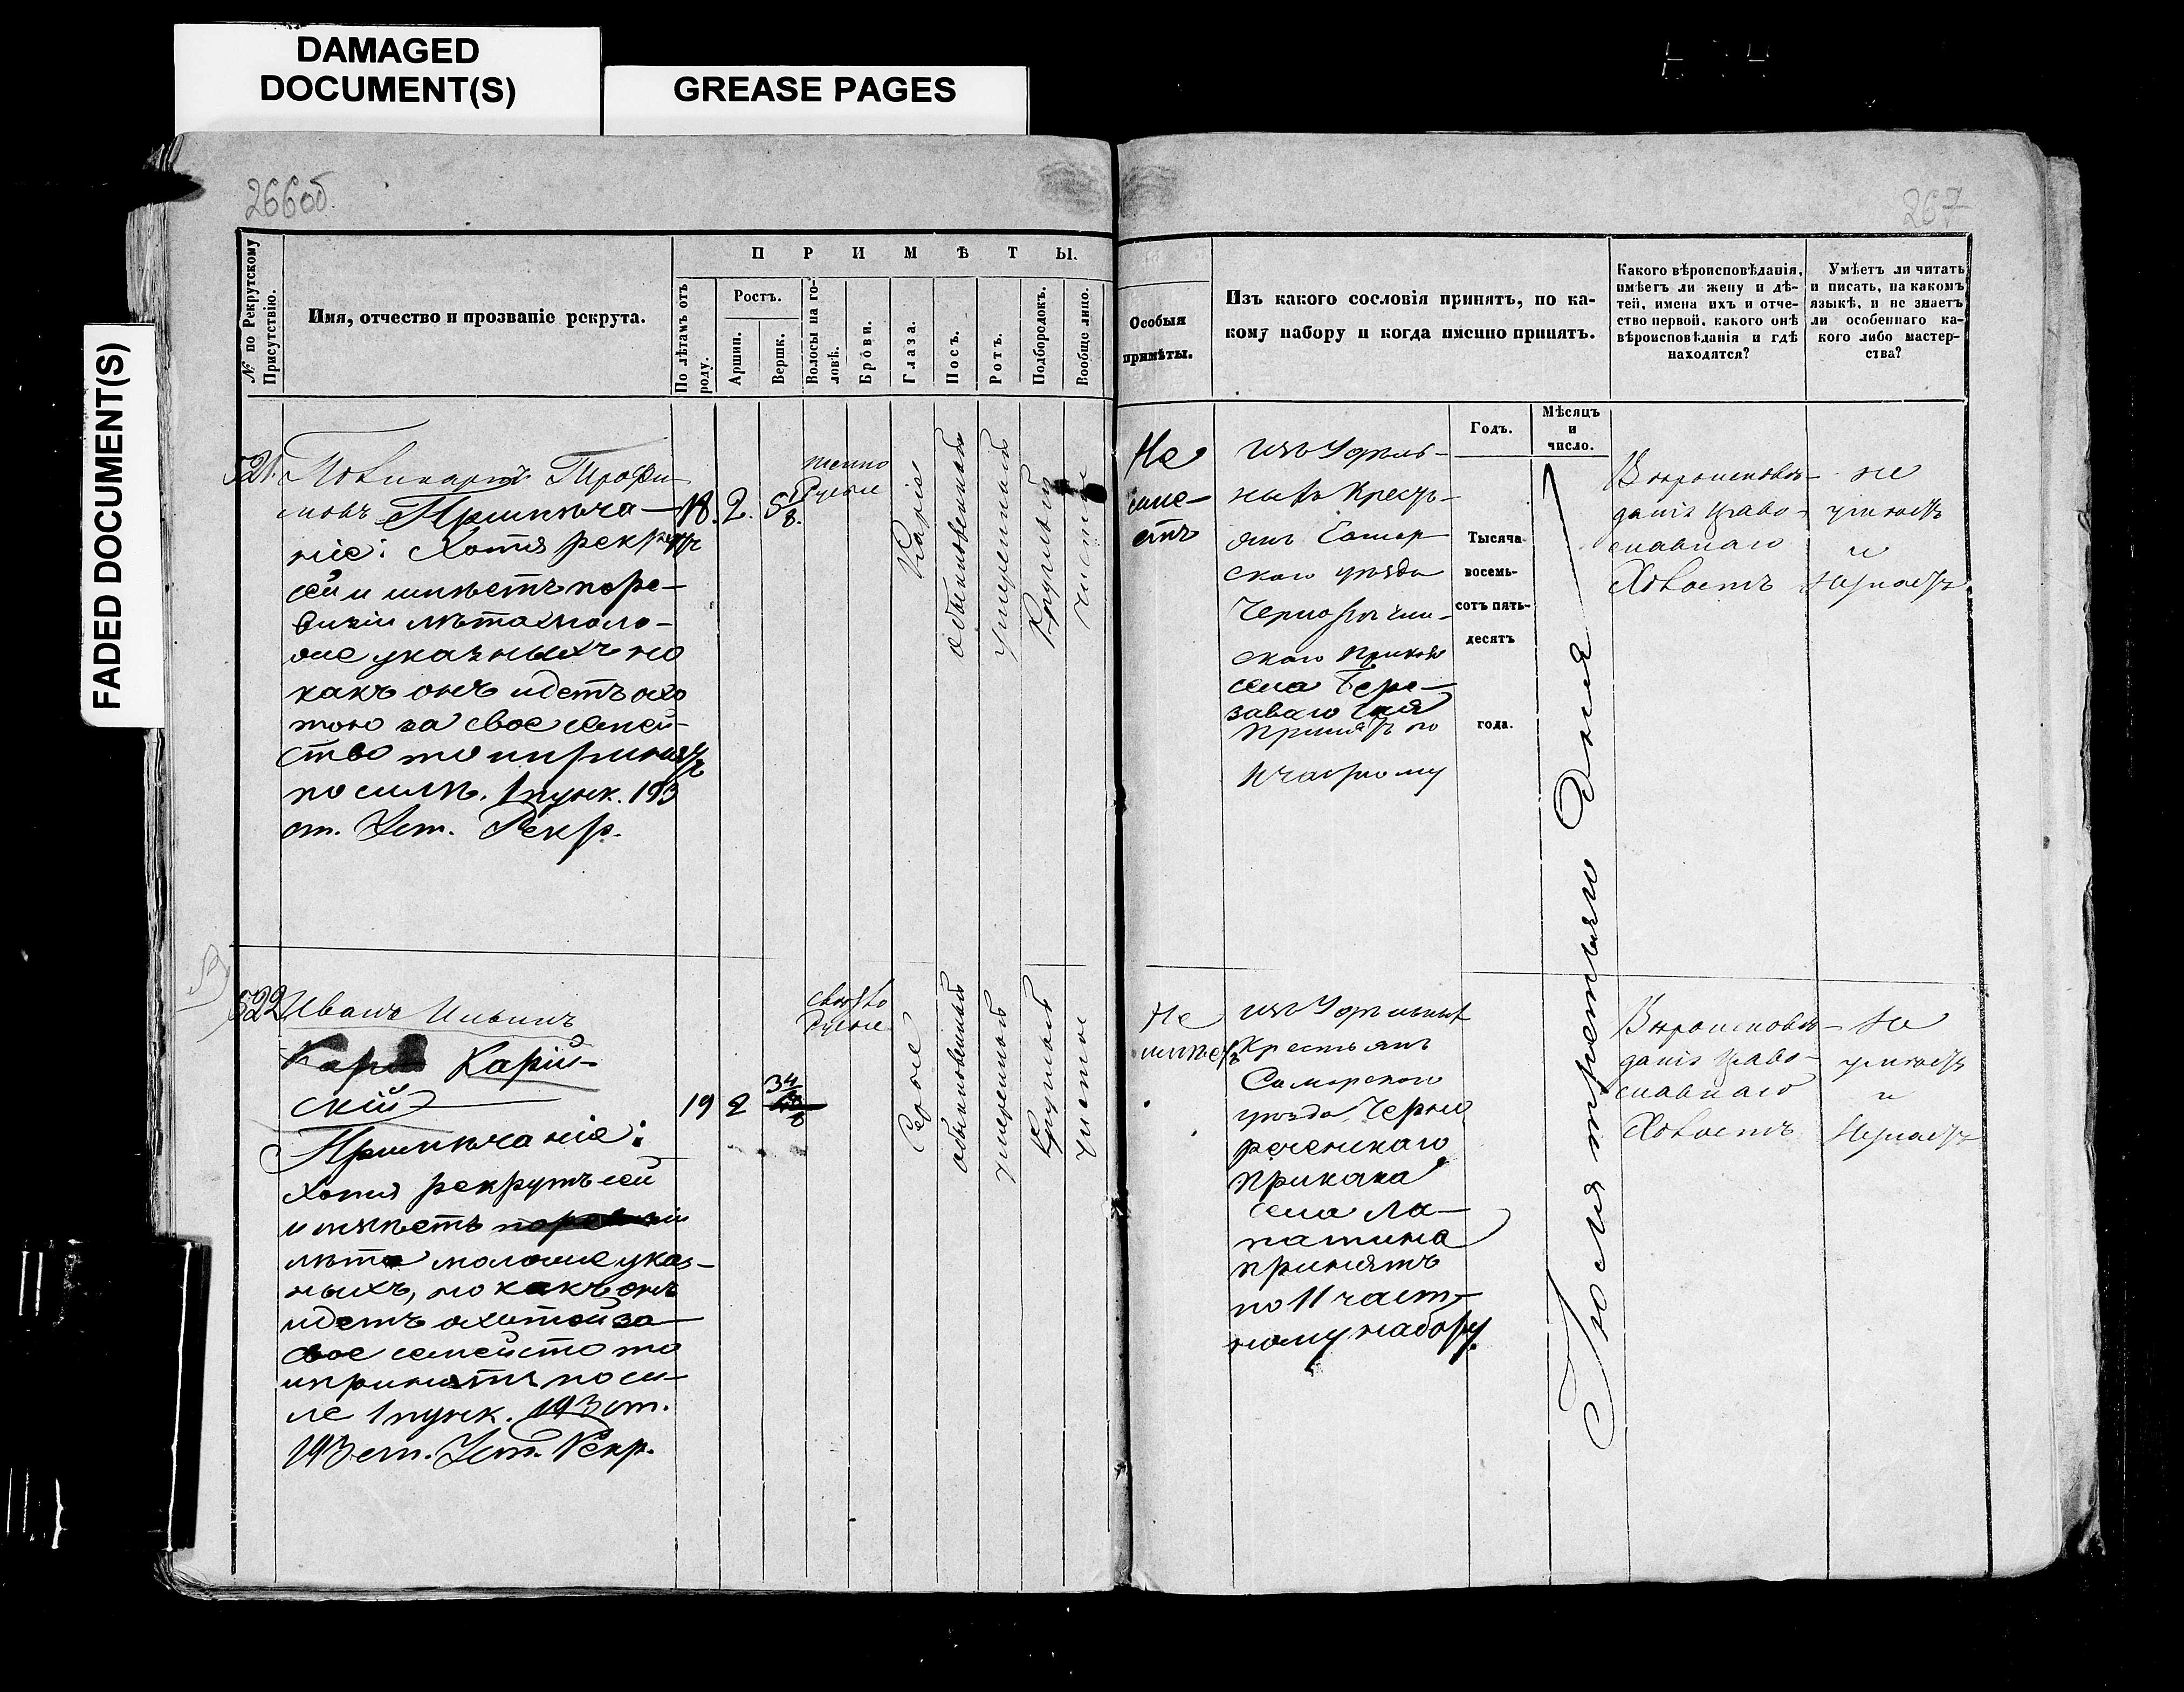 DAMAGED
DOCUMENT(S)
GREASE PAGES
FADED DOCUMENT(S)
266об.
267
№ по Рекрутскому
Присутствію.
Имя, отчество и прозваніе рекрута.
ПРИМѢТЫ.
По лѣтамъ отъ
роду.
Ростъ.
Аршин.
Вершк.
Волосы на го-
ловѣ.
Брови.
Глаза.
Носъ.
Ротъ.
Подбородокъ.
Вообще лицо.
Особыя
примѣты.
Изъ какого сословія принятъ, по ка-
кому набору и когда именно принятъ.
Какого вѣроисповѣданія,
имѣетъ ли жену и дѣ-
тей, имена ихъ и отче-
ство первой, какого онѣ
вѣроисповѣданія и гдѣ
находятся?
Умѣетъ ли читать
и писать, на какомъ
языкѣ, и не знаетъ
ли особеннаго ка-
кого либо мастер-
ства?
Годъ.
Мѣсяцъ
и
число.
Тысяча
восемь-
сотъ пять-
десятъ
года.
521.
Трофи-
мовъ Примѣча-
ніе: Хотя рекрутъ
сей и имѣетъ по ре-
визіи лѣта моло-
же указныхъ но
какъ онъ идетъ охо
тою за свое семей-
ство то и принятъ
по силѣ. 1 пунк. 193
ст. Уст. Рекр.
18.
2.
5
8.
темно
Русые
Каріе
обыкновенный
умеренный
Круглый
чистое
Не
имѣ-
етъ
изъ Удѣль-
ныхъ Кресть-
янъ Самар
скаго уѣзда
Чернорѣчен-
скаго Приказа
села
принятъ по
11 частному
Іюля третьяго дня
Вѣроисповѣ-
данія Право-
славнаго
Холостъ
не
умѣетъ
и
незнаетъ
522
Иванъ Ильинъ
Карій-
скій
Примѣчаніе:
хотя рекрутъ сей
и имѣетъ по ревизіи
лѣта моложе указ-
ныхъ, но какъ онъ
идетъ охотой за
свое семейсто то
и принятъ по си-
ле 1 пунк. 193 ст.
193 ст. Уст. Рекр.
19
2
3 4/8
свѣтло
Русые
Серые
обыкновенный
умеренный
Круглый
чистое
Не
имѣетъ
изъ Удѣльныхъ
Крестьянъ
Самарскаго
уѣзда Черно
реченскаго
приказа
села Ла-
патина
принятъ
по 11 част-
ному набору.
Вѣроисповѣ-
данія Право-
славнаго
Холостъ
не
умѣетъ
и
незнаетъ